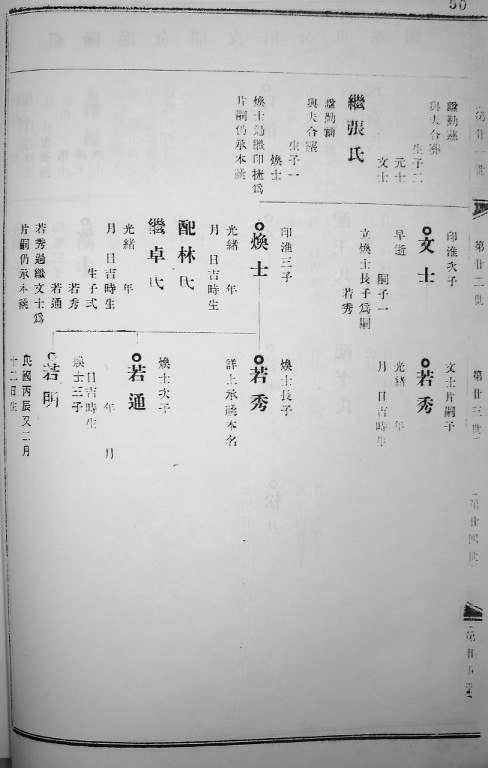 50
第廿一世
第廿二世
第廿三世
第廿四世
第廿五世
諡勤慈
與夫合葬
生子二
元士
文士
繼張氏
諡勤
與夫合葬
生子一
煥士
煥士過繼印捷爲
片嗣仍承本祧
印淮次子
文士
早逝
嗣子一
立煥士長子爲嗣
若秀
印淮三子
煥士
光緒 年
月 日吉時生
配林氏
繼卓氏
光緒 年
月 日吉時生
生子弍
若秀
若通
若秀過繼文士爲
片嗣仍承本祧
文士片嗣子
若秀
光緒 年
月 日吉時生
煥士長子
若秀
詳上承祧本名
煥士次子
若通
年 月
日吉時生
煥士三子
若明
民國丙辰又二月
十二日生